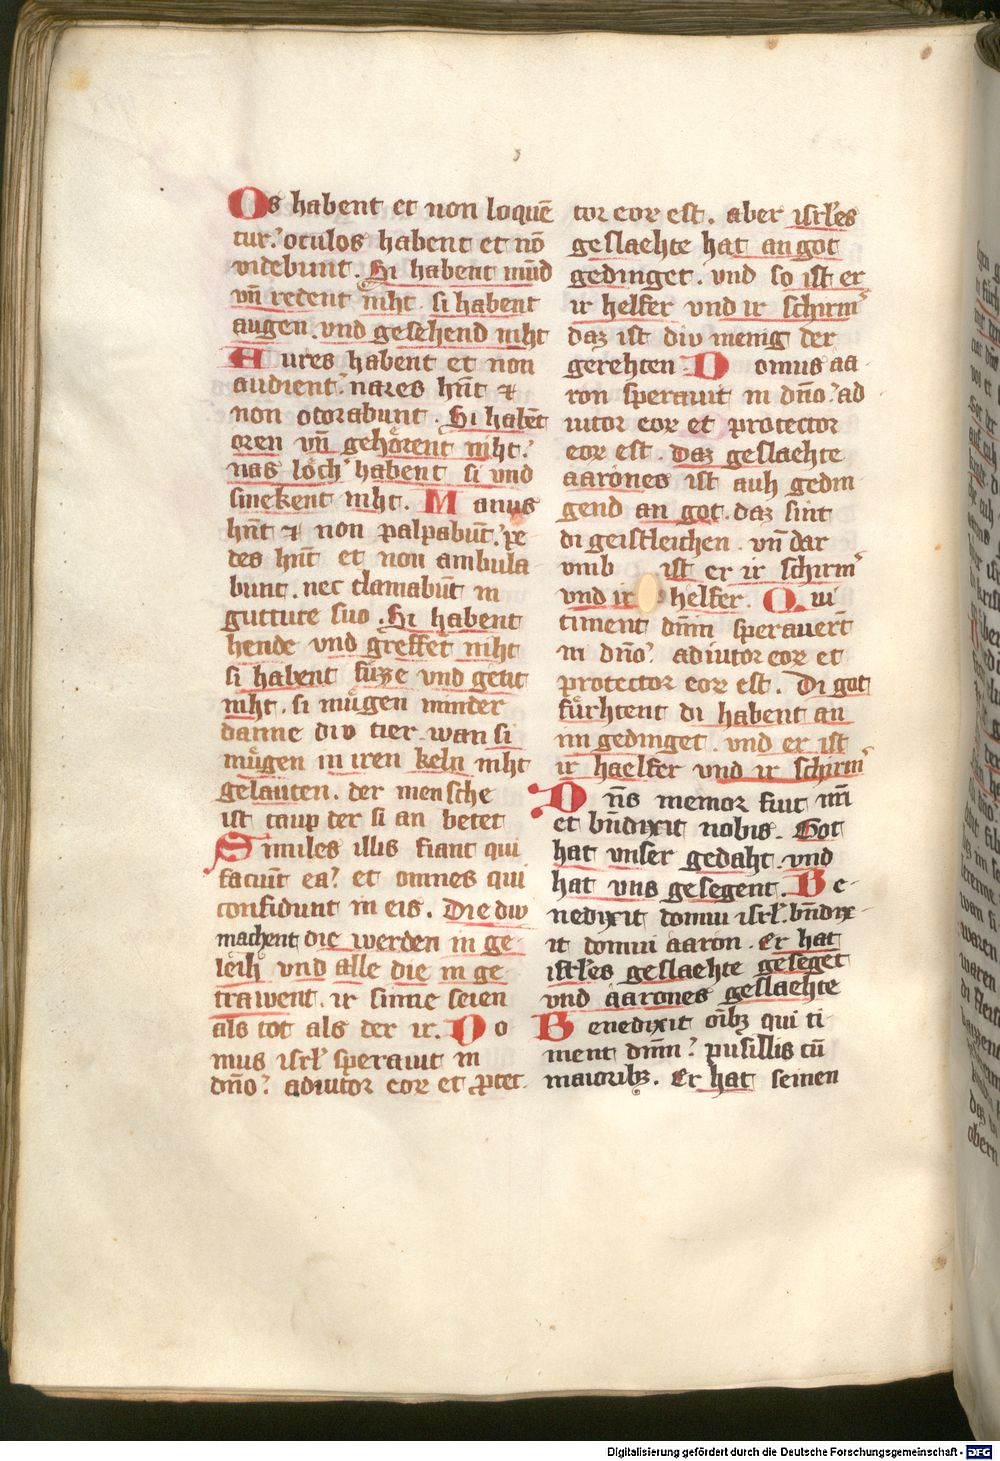 Os habent et non loquē
tur. oculos habent et nō
videbunt. Si habent mūnd
vn̄ redent niht si habent
augen. vnd gesehend niht
Aures habent et non
audient. nares hn̄t et
non odorabunt. Si habēt
oren vn̄ gehoͤrent niht.
nas loͤch habent si vnd
smekent niht. Manus
hn̄t et non palpabūt. pe
des hn̄t et non ambula
bunt. nec clamabūt in
gutture suo. Si habent
hende vnd greffēt niht
si habent fuͤzze vnd gent
niht. si muͤgen minder
danne div tier. wan si
muͤgen in iren keln niht
gelauten. der mensche
ist taup der si an betet
Similes illis fiant qui
faciūt ea. et omnes qui
confidunt in eis. Die div
machent die werden in ge
leich vnd alle die in ge
trawent. ir sinne seien
als tot als der ir. Do
mus isrl̄ sperauit in
dn̄o. adiutor eoꝝ et ꝓtec
tor eoꝝ est. aber isrl̄es
geslaehte hat an got
gedinget. vnd so ist er
ir helfer vnd ir schirm̄
daz ist div menig der
gerehten. Domus aa
ron sperauit in dn̄o. ad
iutor eoꝝ et protector
eoꝝ est. Daz geslaehte
aarones ist auh gedin
gend an got. daz sint
di geistleichen. vn̄ dar
vmb ist er ir schirm̄
vnd ir helfer. Qui
timent dn̄m sperauerūt
in dn̄o. adiutor eoꝝ et
protector eoꝝ est. Di got
fuͤrhtent di habent an
im gedinget. vnd er ist
ir haelfer vnd ir schirm̄
Dn̄s memor fuit nr̄i
et bn̄dixit nobis. Got
hat vnser gedaht. vnd
hat vns gesegent. Be
nedixit domui isrl̄. bn̄dix
it domui aaron. Er hat
isrl̄es geslaehte gesegēt
vnd aarones geslaehte
Benedixit oībꝫ qui ti
ment dn̄m. pusillis cū
maioribꝫ. Er hat seinen
Digitalisierung gefördert durch die Deutsche Forschungsgemeinschaft - DFG